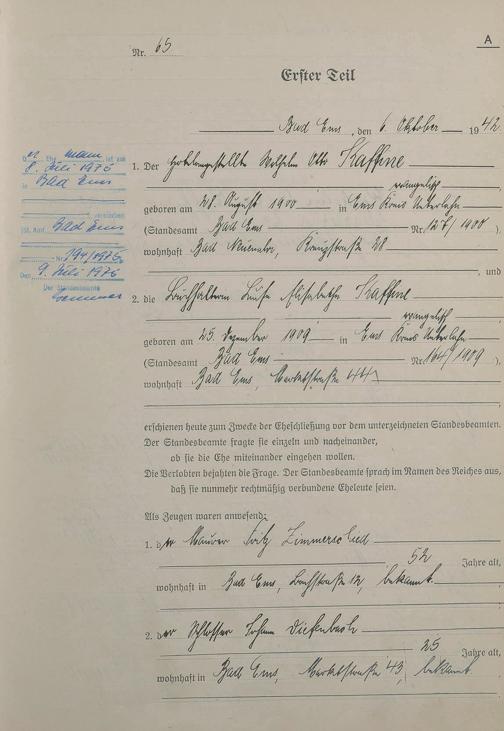 A
Nr. 65
Erster Teil
Bad Ems, den 6. Oktober 1942
1. Der Hotelangestellte Wilhelm Otto Kaffine
evangelisch
geboren am 28. August 1900 in Ems Kreis Unterlahn
(Standesamt Bad Ems Nr. 127/1900)
wohnhaft Bad Neuenahr, Königstraße 28
, und
2. die Buchhalterin Luise Elisabetha Kaffine
evangelisch
geboren am 25. Dezember 1909 in Ems Kreis Unterlahn
(Standesamt Bad Ems Nr. 164/1909).
wohnhaft Bad Ems, Marktstraße
erschienen heute zum Zwecke der Eheschließung vor dem unterzeichneten Standesbeamten.
Der Standesbeamte fragte sie einzeln und nacheinander,
ob sie die Ehe miteinander eingehen wollen.
Die Verlobten bejahten die Frage. Der Standesbeamte sprach im Namen des Reiches aus,
daß sie nunmehr rechtmäßig verbundene Eheleute seien.
Als Zeugen waren anwesend:
1. der Maurer Fritz Zimmerschied
52 Jahre alt,
wohnhaft in Bad Ems, 12, bekannt
2. der Schlosser Johann Diefenbach
25 Jahre alt,
wohnhaft in Bad Ems, Marktstraße 43, bekannt
Ehemann ist am
8. Juli 1976
in Bad Ems
verstorben
(St. Amt Bad Ems
Nr. 194/1976)
Den 9. Juli 1976
Der Standesbeamte